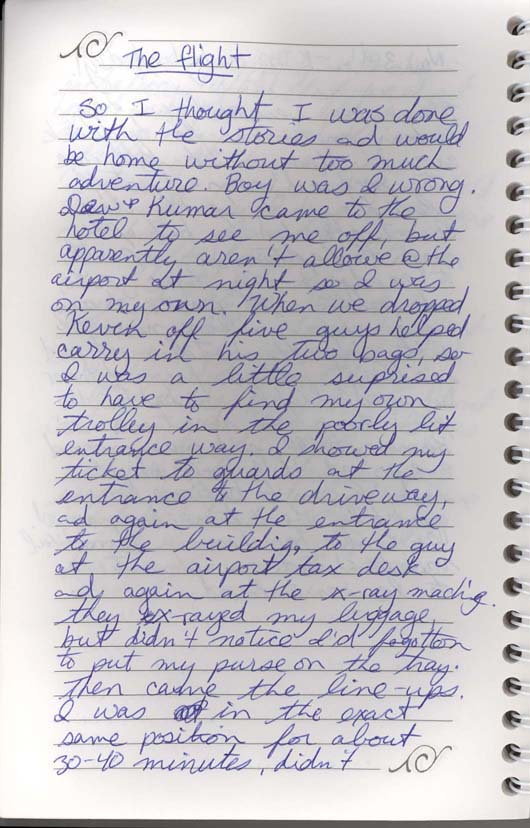 The flight
So I thought I was done
with the stories ad would
be home without too much
adventure. Boy was I wrong.
Kumar came to the
hotel to see me off, but
apparently aren't allowe @ the
airport at night so I was
on my own. When we dropped
Keven off five guys helped
carry in his two bags, so
I was a little suprised
to have to find my own
trolley in the poorly lit
entrance way. I showed my
ticket to guards at the
entrance to the driveway,
ad again at the entrance
to the buildig, to the guy
at the airport tax desk
ad again at the x-ray machig.
they x-rayed my luggage,
but didn't notice I'd fogotton
to put my purse on the tray.
Then came the line-ups.
I was in the exact
same position for about
30-40 minutes, didn't